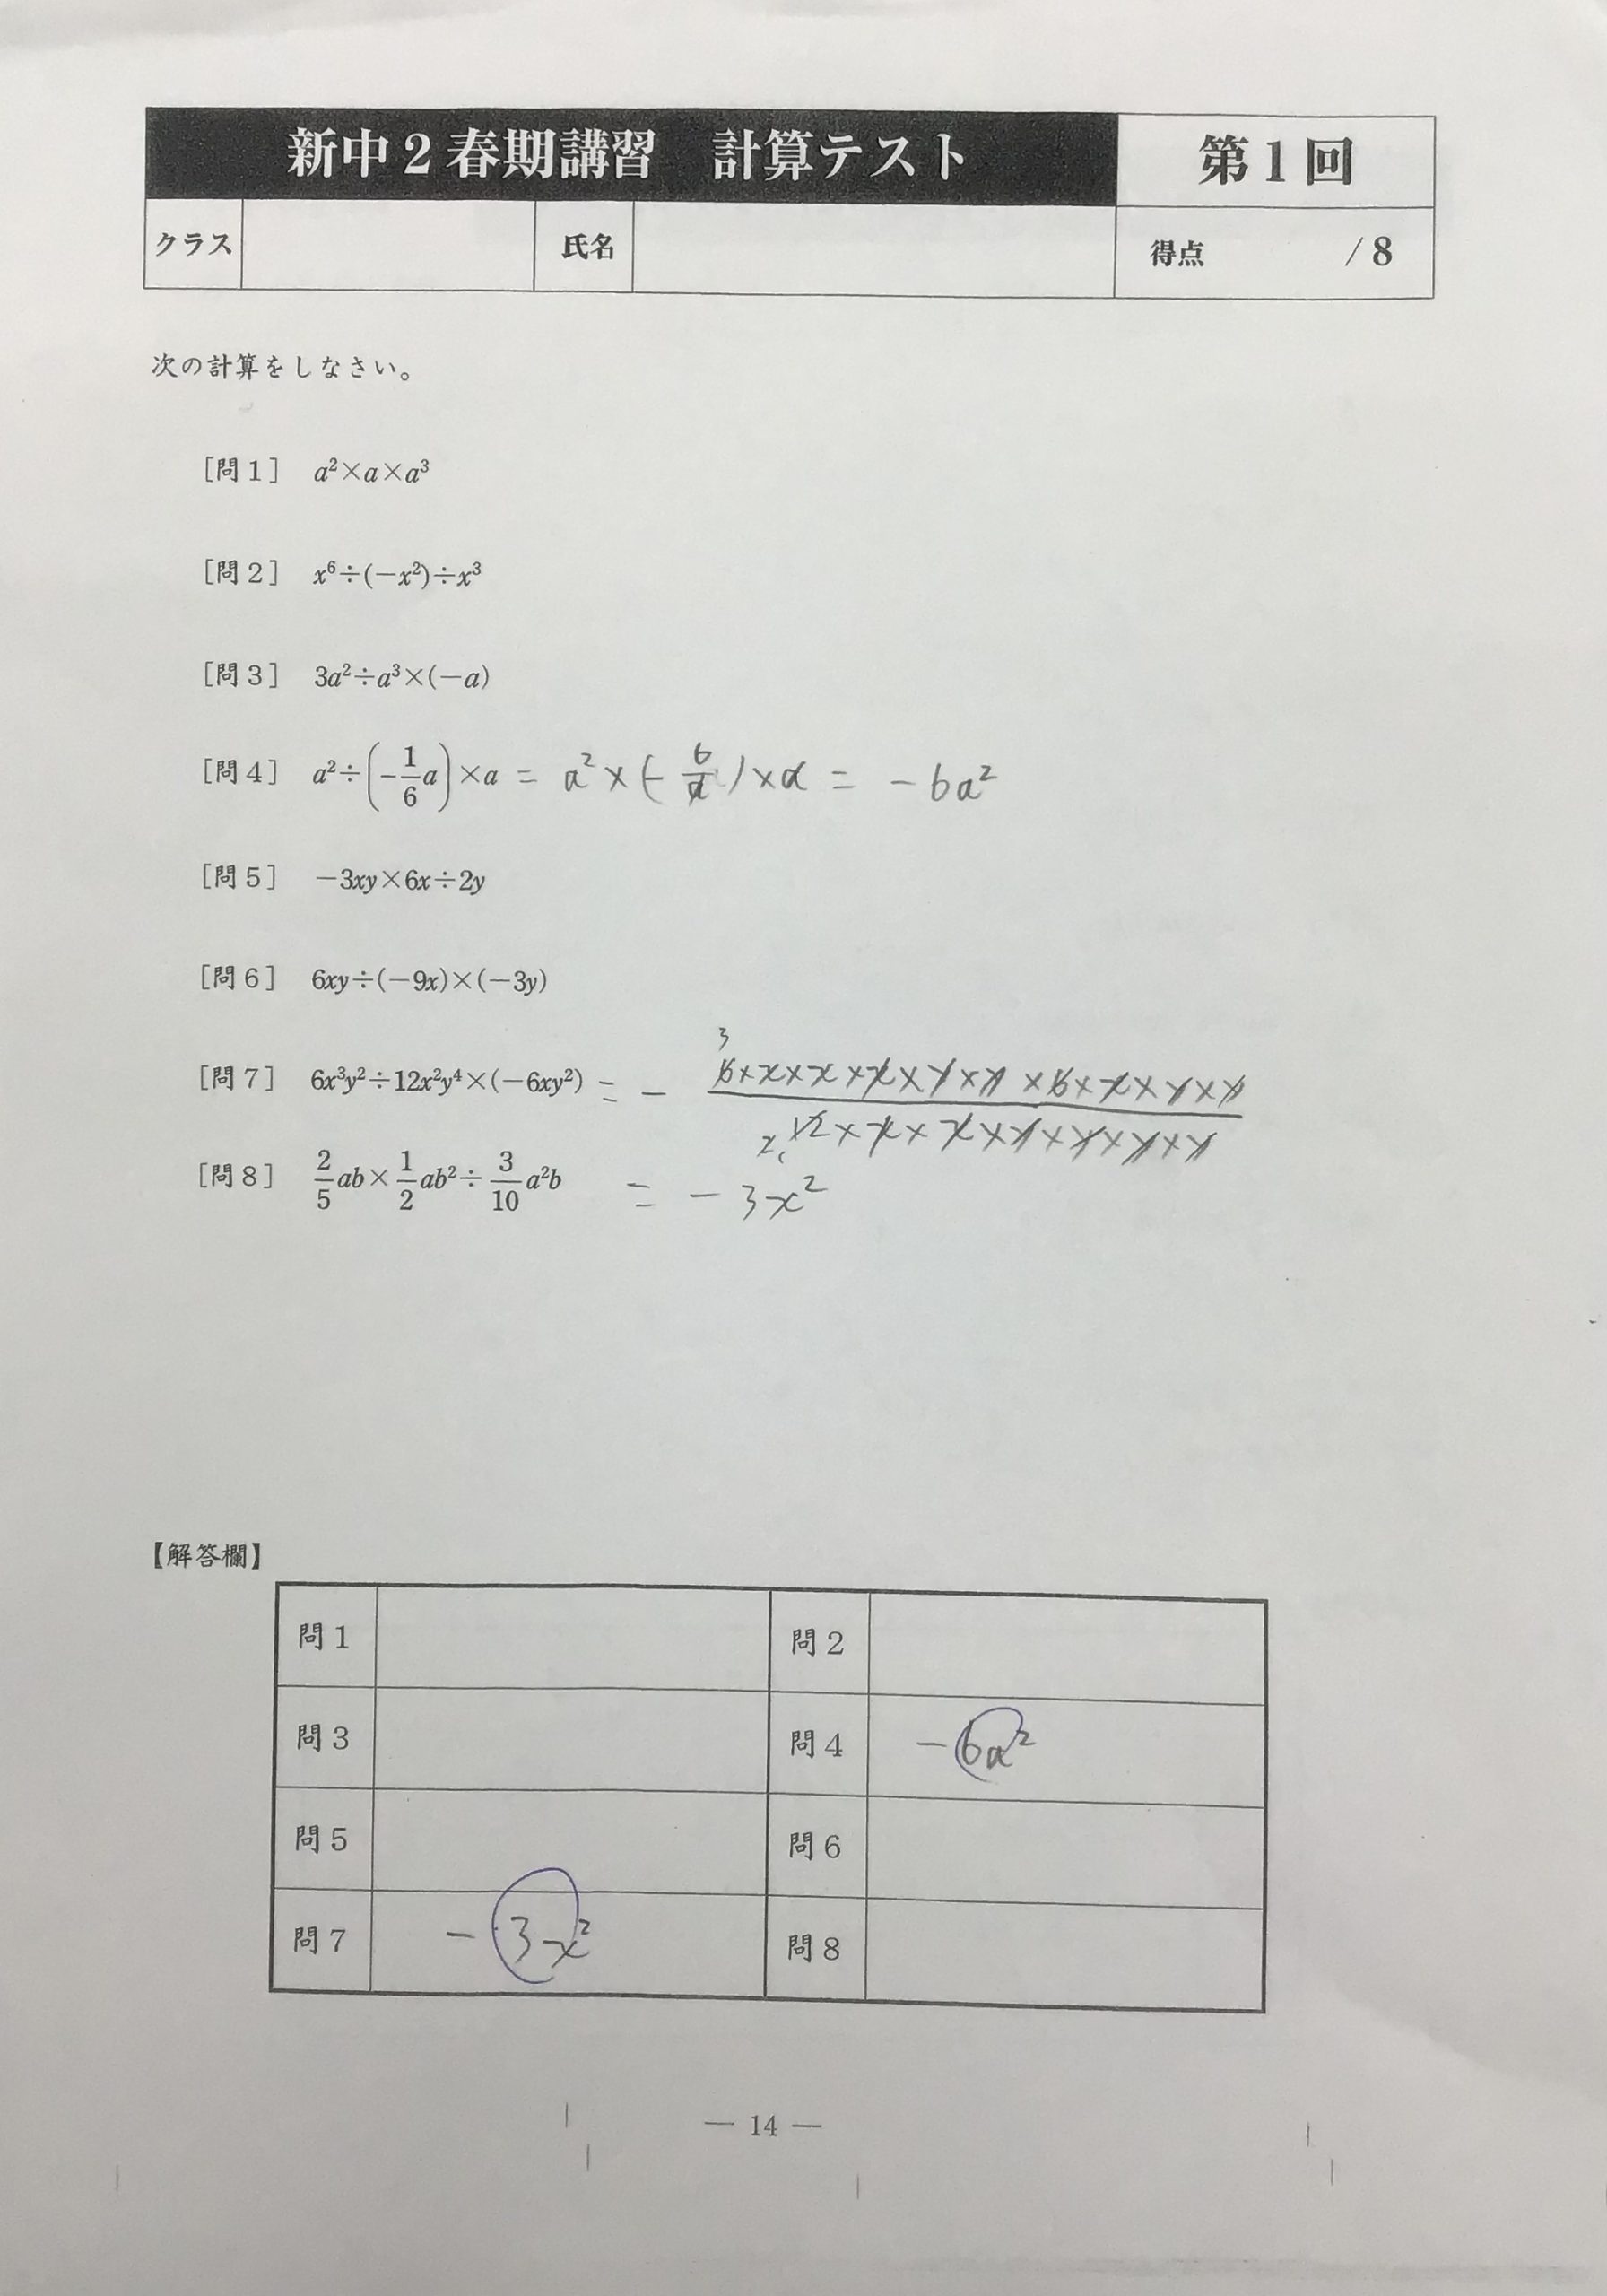 新中2春期講習 計算テスト 第1回
クラス 氏名 得点 /8
次の計算をしなさい。
[問1] a²×a×a³
[問2] x⁶÷(−x²)÷x³
[問3] 3a²÷a³×(−a)
[問4] a²÷(−1/6 a)×a = a²×(−6/a)×a = −6a²
[問5] −3xy×6x÷2y
[問6] 6xy÷(−9x)×(−3y)
3
[問7] 6x³y²÷12x²y⁴×(−6xy²) = − 6×x×x×x×y×y×6×x×y×y / 12×x×x×y×y×y×y
2
[問8] 2/5 ab×1/2 ab²÷3/10 a²b
= −3x²
【解答欄】
問1 問2
問3 問4 −6a²
問5 問6
問7 −3x² 問8
— 14 —